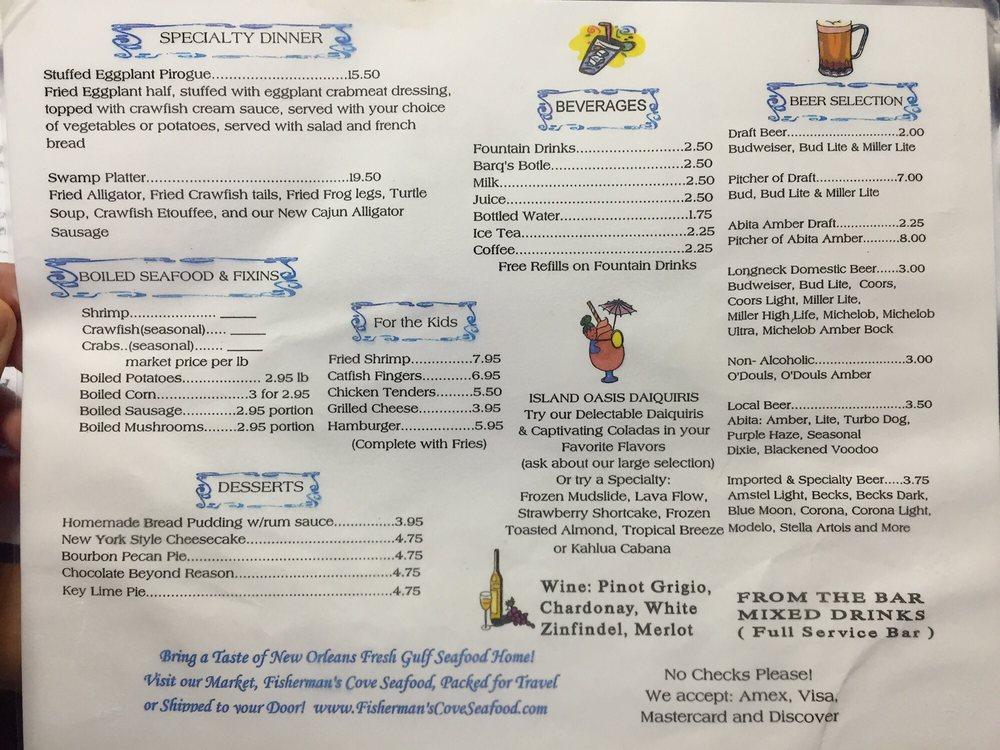 SPECIALTY DINNER
Stuffed Eggplant Pirogue..................................15.50
Fried Eggplant half, stuffed with eggplant crabmeat dressing,
topped with crawfish cream sauce, served with your choice
of vegetables or potatoes, served with salad and french
bread
Swamp Platter..........................................................19.50
Fried Alligator, Fried Crawfish tails, Fried Frog legs, Turtle
Soup, Crawfish Etouffee, and our New Cajun Alligator
Sausage
BOILED SEAFOOD & FIXINS
Shrimp...................... _____
Crawfish(seasonal)..... _____
Crabs..(seasonal)....... _____
market price per lb
Boiled Potatoes.................... 2.95 lb
Boiled Corn.......................3 for 2.95
Boiled Sausage............2.95 portion
Boiled Mushrooms........2.95 portion
For the Kids
Fried Shrimp..............7.95
Catfish Fingers............6.95
Chicken Tenders.........5.50
Grilled Cheese............3.95
Hamburger..................5.95
(Complete with Fries)
DESSERTS
Homemade Bread Pudding w/rum sauce..............3.95
New York Style Cheesecake....................................4.75
Bourbon Pecan Pie...................................................4.75
Chocolate Beyond Reason.......................................4.75
Key Lime Pie.............................................................4.75
BEVERAGES
Fountain Drinks...........................2.50
Barq's Botle..................................2.50
Milk..............................................2.50
Juice.............................................2.50
Bottled Water................................1.75
Ice Tea..........................................2.25
Coffee...........................................2.25
Free Refills on Fountain Drinks
ISLAND OASIS DAIQUIRIS
Try our Delectable Daiquiris
& Captivating Coladas in your
Favorite Flavors
(ask about our large selection)
Or try a Specialty:
Frozen Mudslide, Lava Flow,
Strawberry Shortcake, Frozen
Toasted Almond, Tropical Breeze
or Kahlua Cabana
Wine: Pinot Grigio,
Chardonay, White
Zinfindel, Merlot
BEER SELECTION
Draft Beer............................2.00
Budweiser, Bud Lite & Miller Lite
Pitcher of Draft.....................7.00
Bud, Bud Lite & Miller Lite
Abita Amber Draft...............2.25
Pitcher of Abita Amber.........8.00
Longneck Domestic Beer......3.00
Budweiser, Bud Lite, Coors,
Coors Light, Miller Lite,
Miller High Life, Michelob, Michelob
Ultra, Michelob Amber Bock
Non- Alcoholic.......................3.00
O'Douls, O'Douls Amber
Local Beer.............................3.50
Abita: Amber, Lite, Turbo Dog,
Purple Haze, Seasonal
Dixie, Blackened Voodoo
Imported & Specialty Beer.....3.75
Amstel Light, Becks, Becks Dark,
Blue Moon, Corona, Corona Light,
Modelo, Stella Artois and More
FROM THE BAR
MIXED DRINKS
( Full Service Bar )
Bring a Taste of New Orleans Fresh Gulf Seafood Home!
Visit our Market, Fisherman's Cove Seafood, Packed for Travel
or Shipped to your Door! www.Fisherman'sCoveSeafood.com
No Checks Please!
We accept: Amex, Visa,
Mastercard and Discover